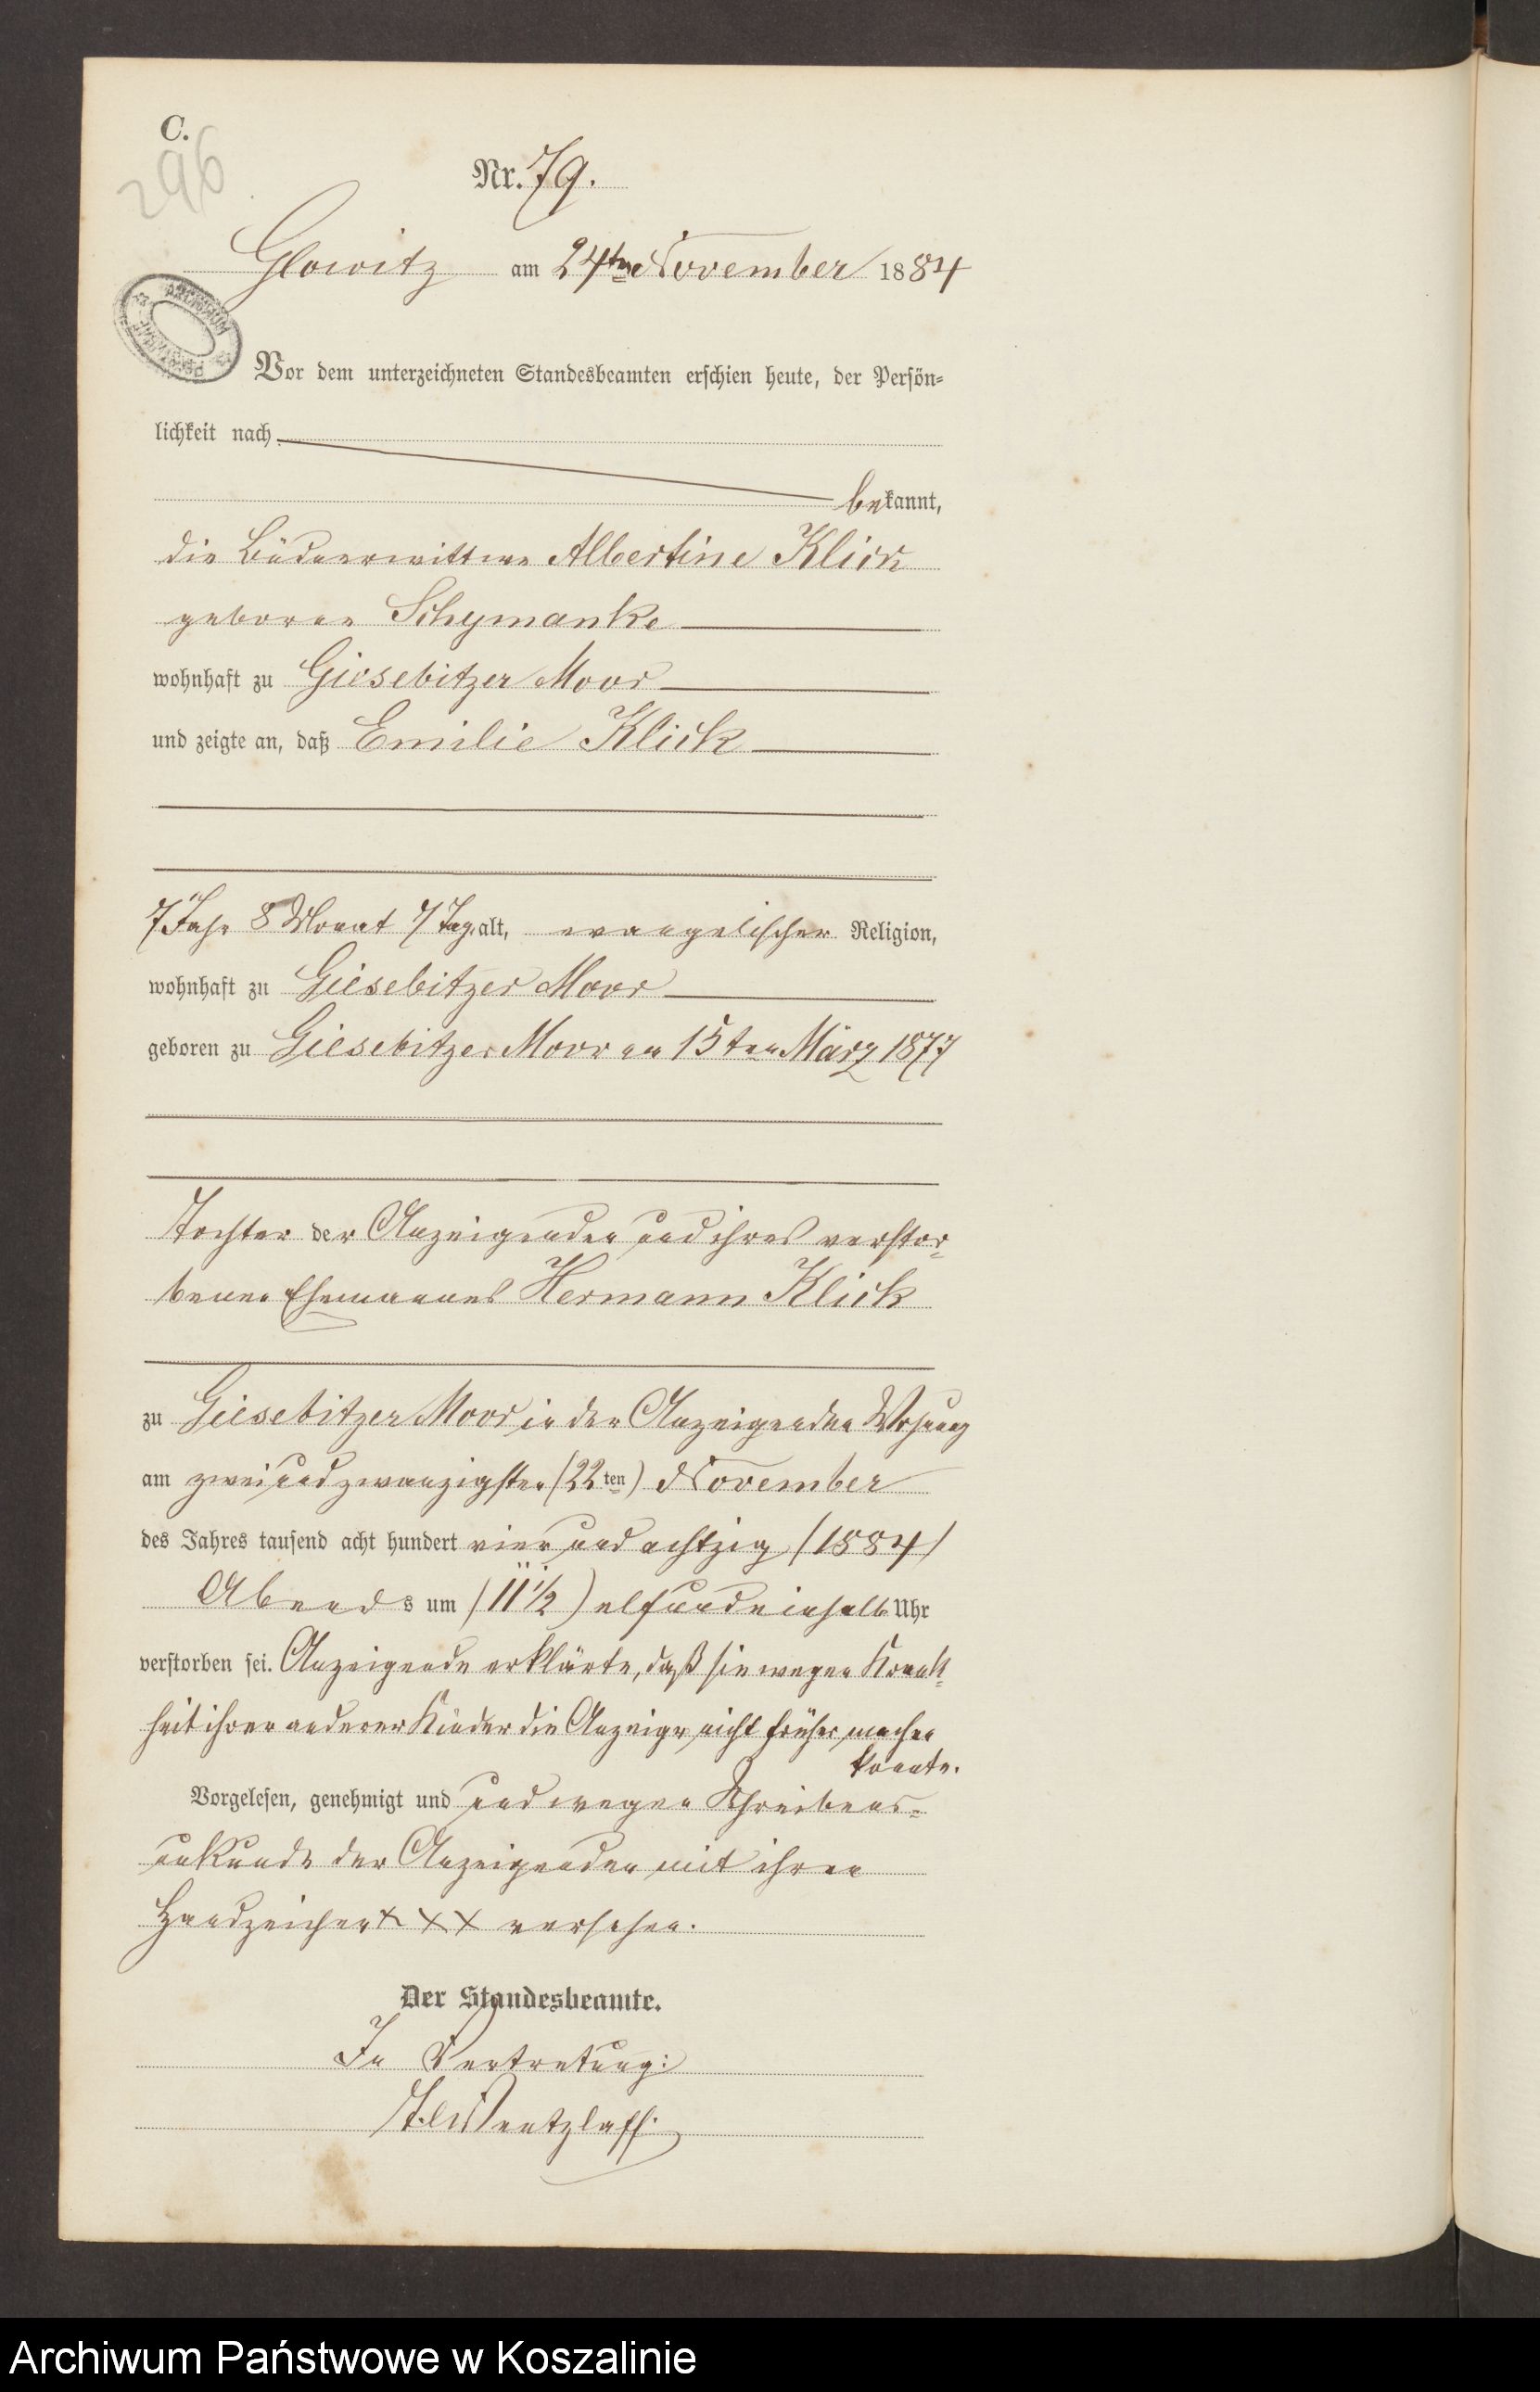 C.
296
Nr. 79.
Glowitz am 24ten November 1884
ARCHIWUM
Vor dem unterzeichneten Standesbeamten erschien heute, der Persön-
lichkeit nach
bekannt,
die Büdnerwittwe Albertine Klick
geborene Schymanke
wohnhaft zu Giesebitzer Moor
und zeigte an, daß Emilie Klick
7 Jahr 8 Monat 7 Tage alt, evangelischer Religion,
wohnhaft zu Giesebitzer Moor
geboren zu Giesebitzer Moor am 15ten März 1877
Tochter der Anzeigenden und ihres verstor-
benen Ehemannes Hermann Klick
zu Giesebitzer Moor in der Anzeigenden Wohnung
am zweiundzwanzigsten (22ten) November
des Jahres tausend acht hundert vier und achtzig /1884/
Abends um (11 1/2) elfundeinhalb Uhr
verstorben sei. Anzeigende erklärte, daß sie wegen Krank-
heit ihrer anderer Kinder die Anzeige nicht früher machen
konnte.
Vorgelesen, genehmigt und und wegen Schreibens-
unkunde der Anzeigenden mit ihren
Handzeichen XXX versehen.
Der Standesbeamte.
In Vertretung:
Wentzlaff.
Archiwum Państwowe w Koszalinie